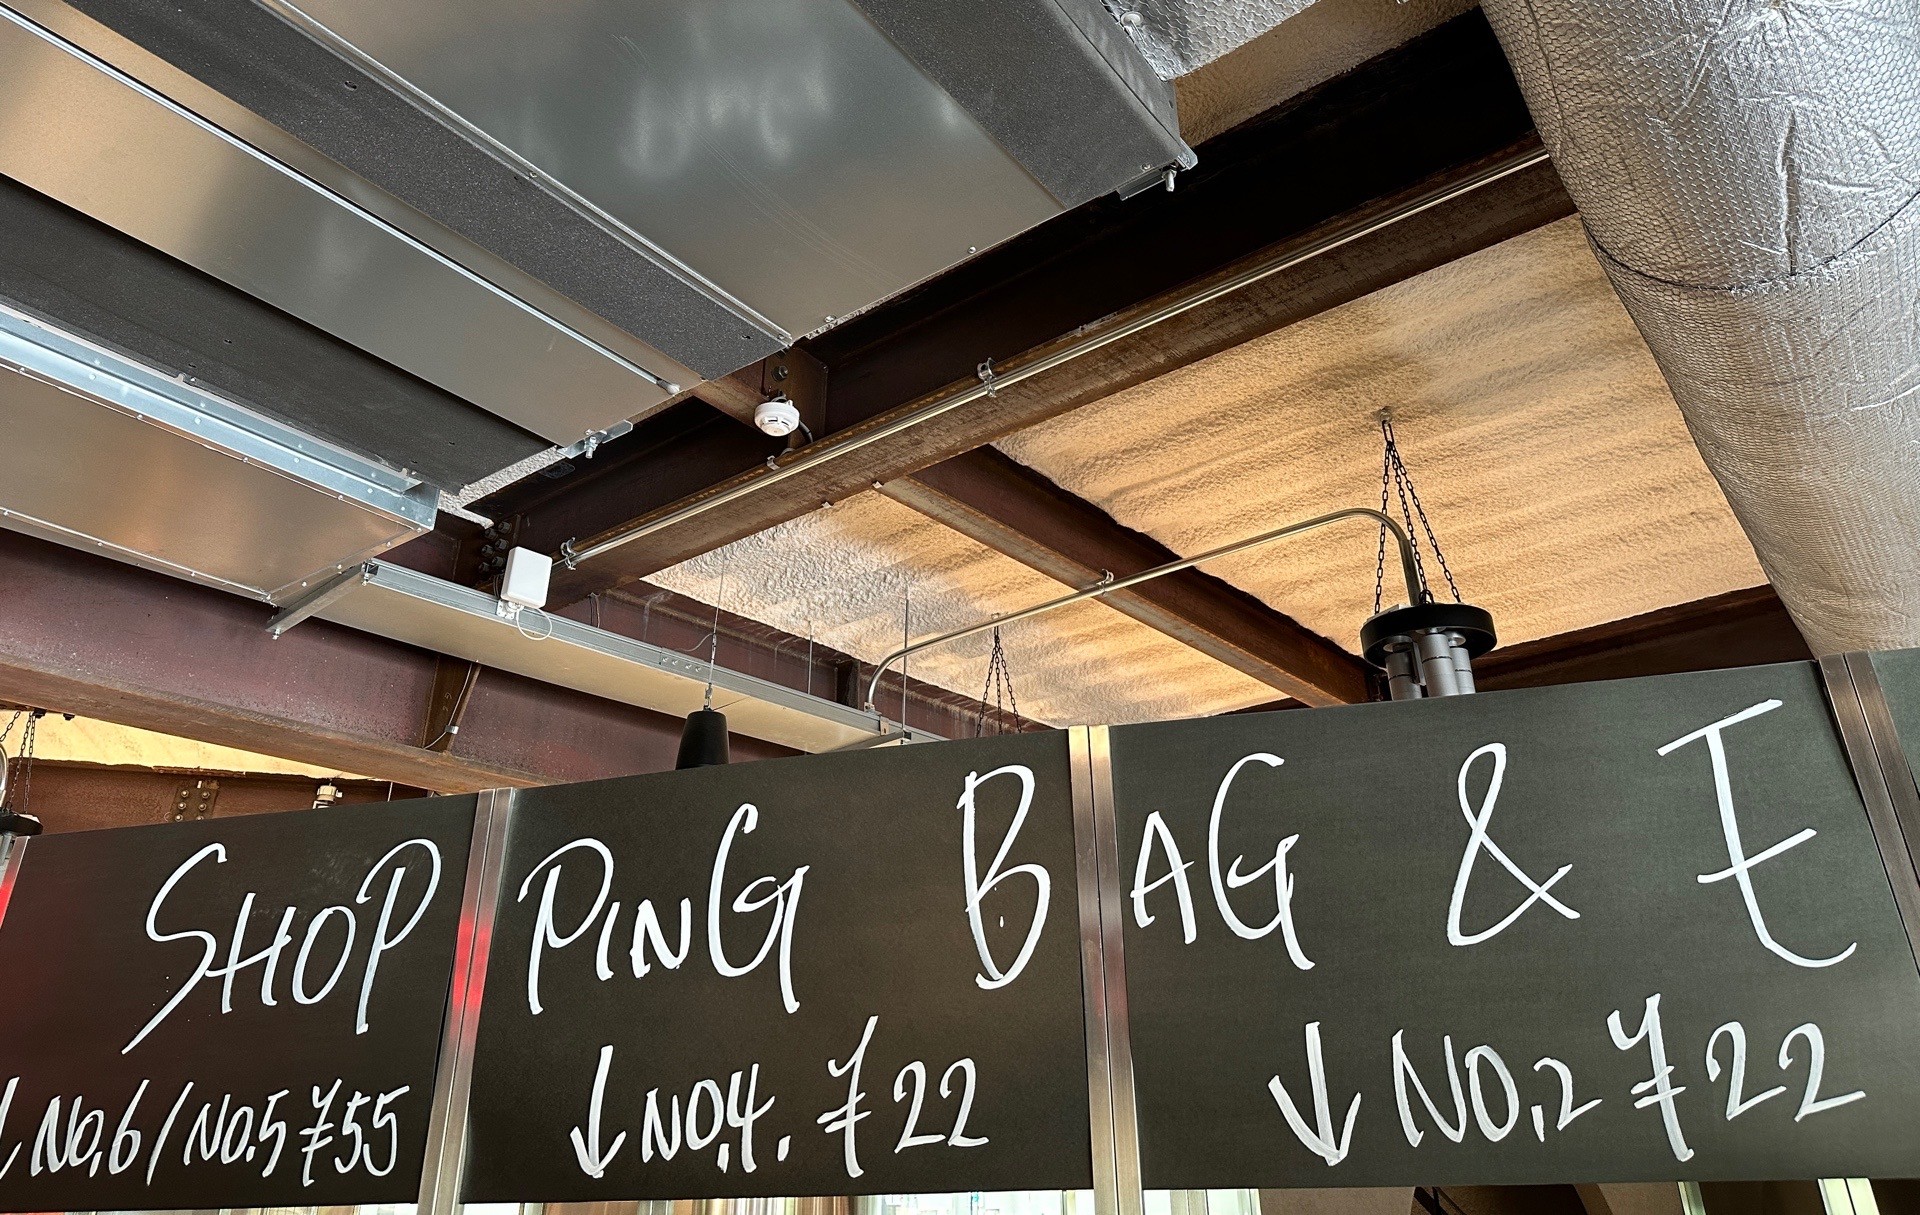 SHOPPING BAG & E
↓ NO.6/NO.5 ¥55 ↓ NO.4. ¥22 ↓ NO.2 ¥22